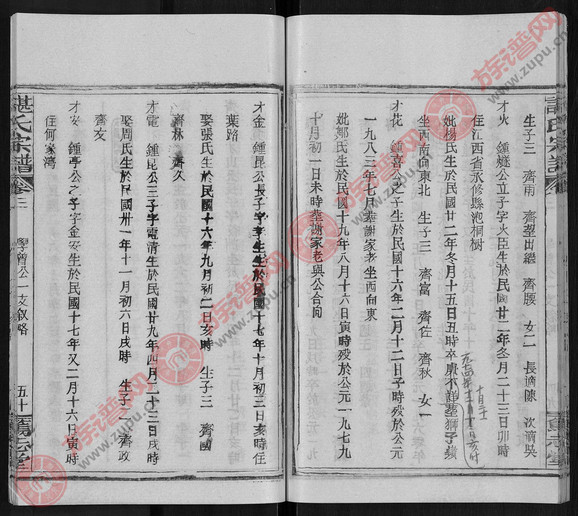 生子三 齊雨 齊望出繼 齊腰 女二 長適陳 次適吳
才火 鍾燧公立子字火臣生於民國廿二年冬月二十三日卯時
住江西省永修縣泡桐樹
妣楊氏生於民國廿二年冬月十五日丑時卒康不詳葬獅子嶺
坐西南向東北 生子三 齊富 齊佐 齊秋 女一
才花 鍾喜公之子生於民國十六年二月十二日子時歿於公元
一九八三年七月葬謝家老坐西向東
妣鄒氏生於民國十九年八月十六日寅時歿於公元一九七九
十月初一日未時葬謝家老與公合向
諶氏宗譜
卷三
學曾公一支叙略
五十
才金 鍾昆公長子字孝生生於民國十七年十月初三日亥時住
葉路
娶張氏生於民國十六年九月初二日亥時 生子三 齊國
齊林 齊久
才電 鍾昆公三子字電清生於民國廿九年四月二十三日戌時
娶周氏生於民國卅一年十一月初六日戌時 生子二 齊政
齊友
才安 鍾亭公之子字金安生於民國十七年又二月十六日寅時
住何家灣
族谱网 www.zupu.cn